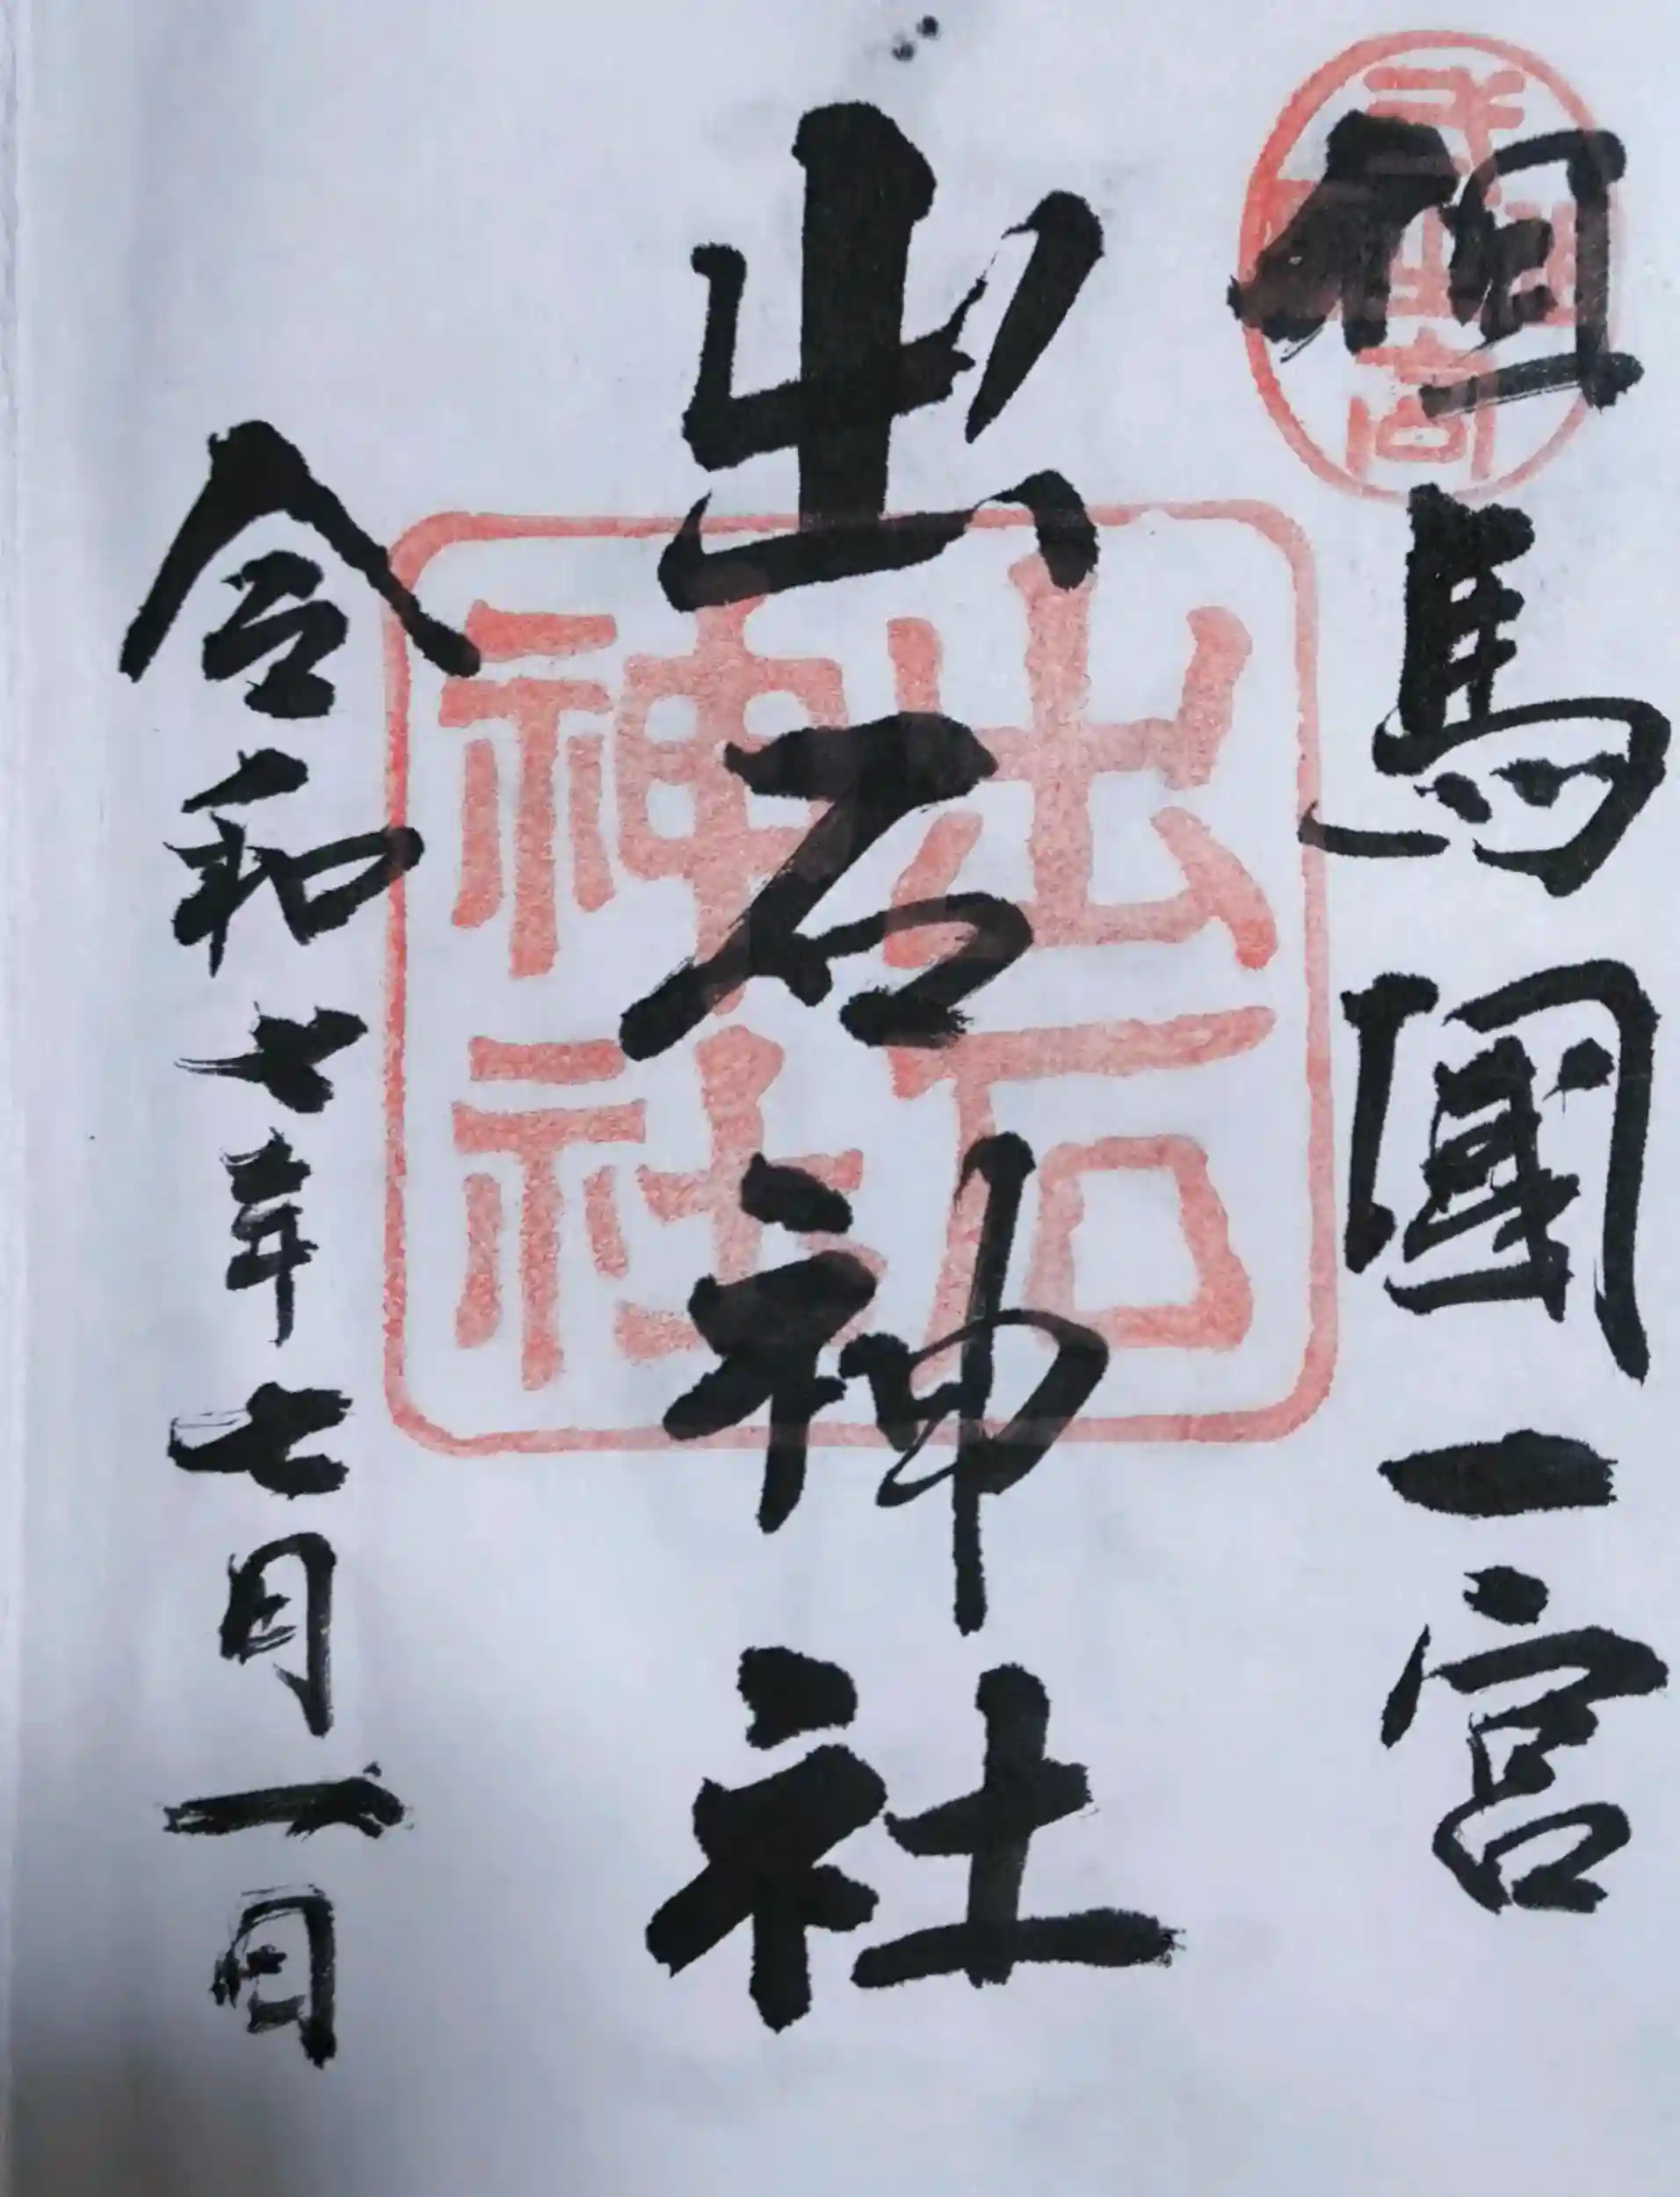 但馬國一宮
出石神社
出石神社
令和七年七月一日